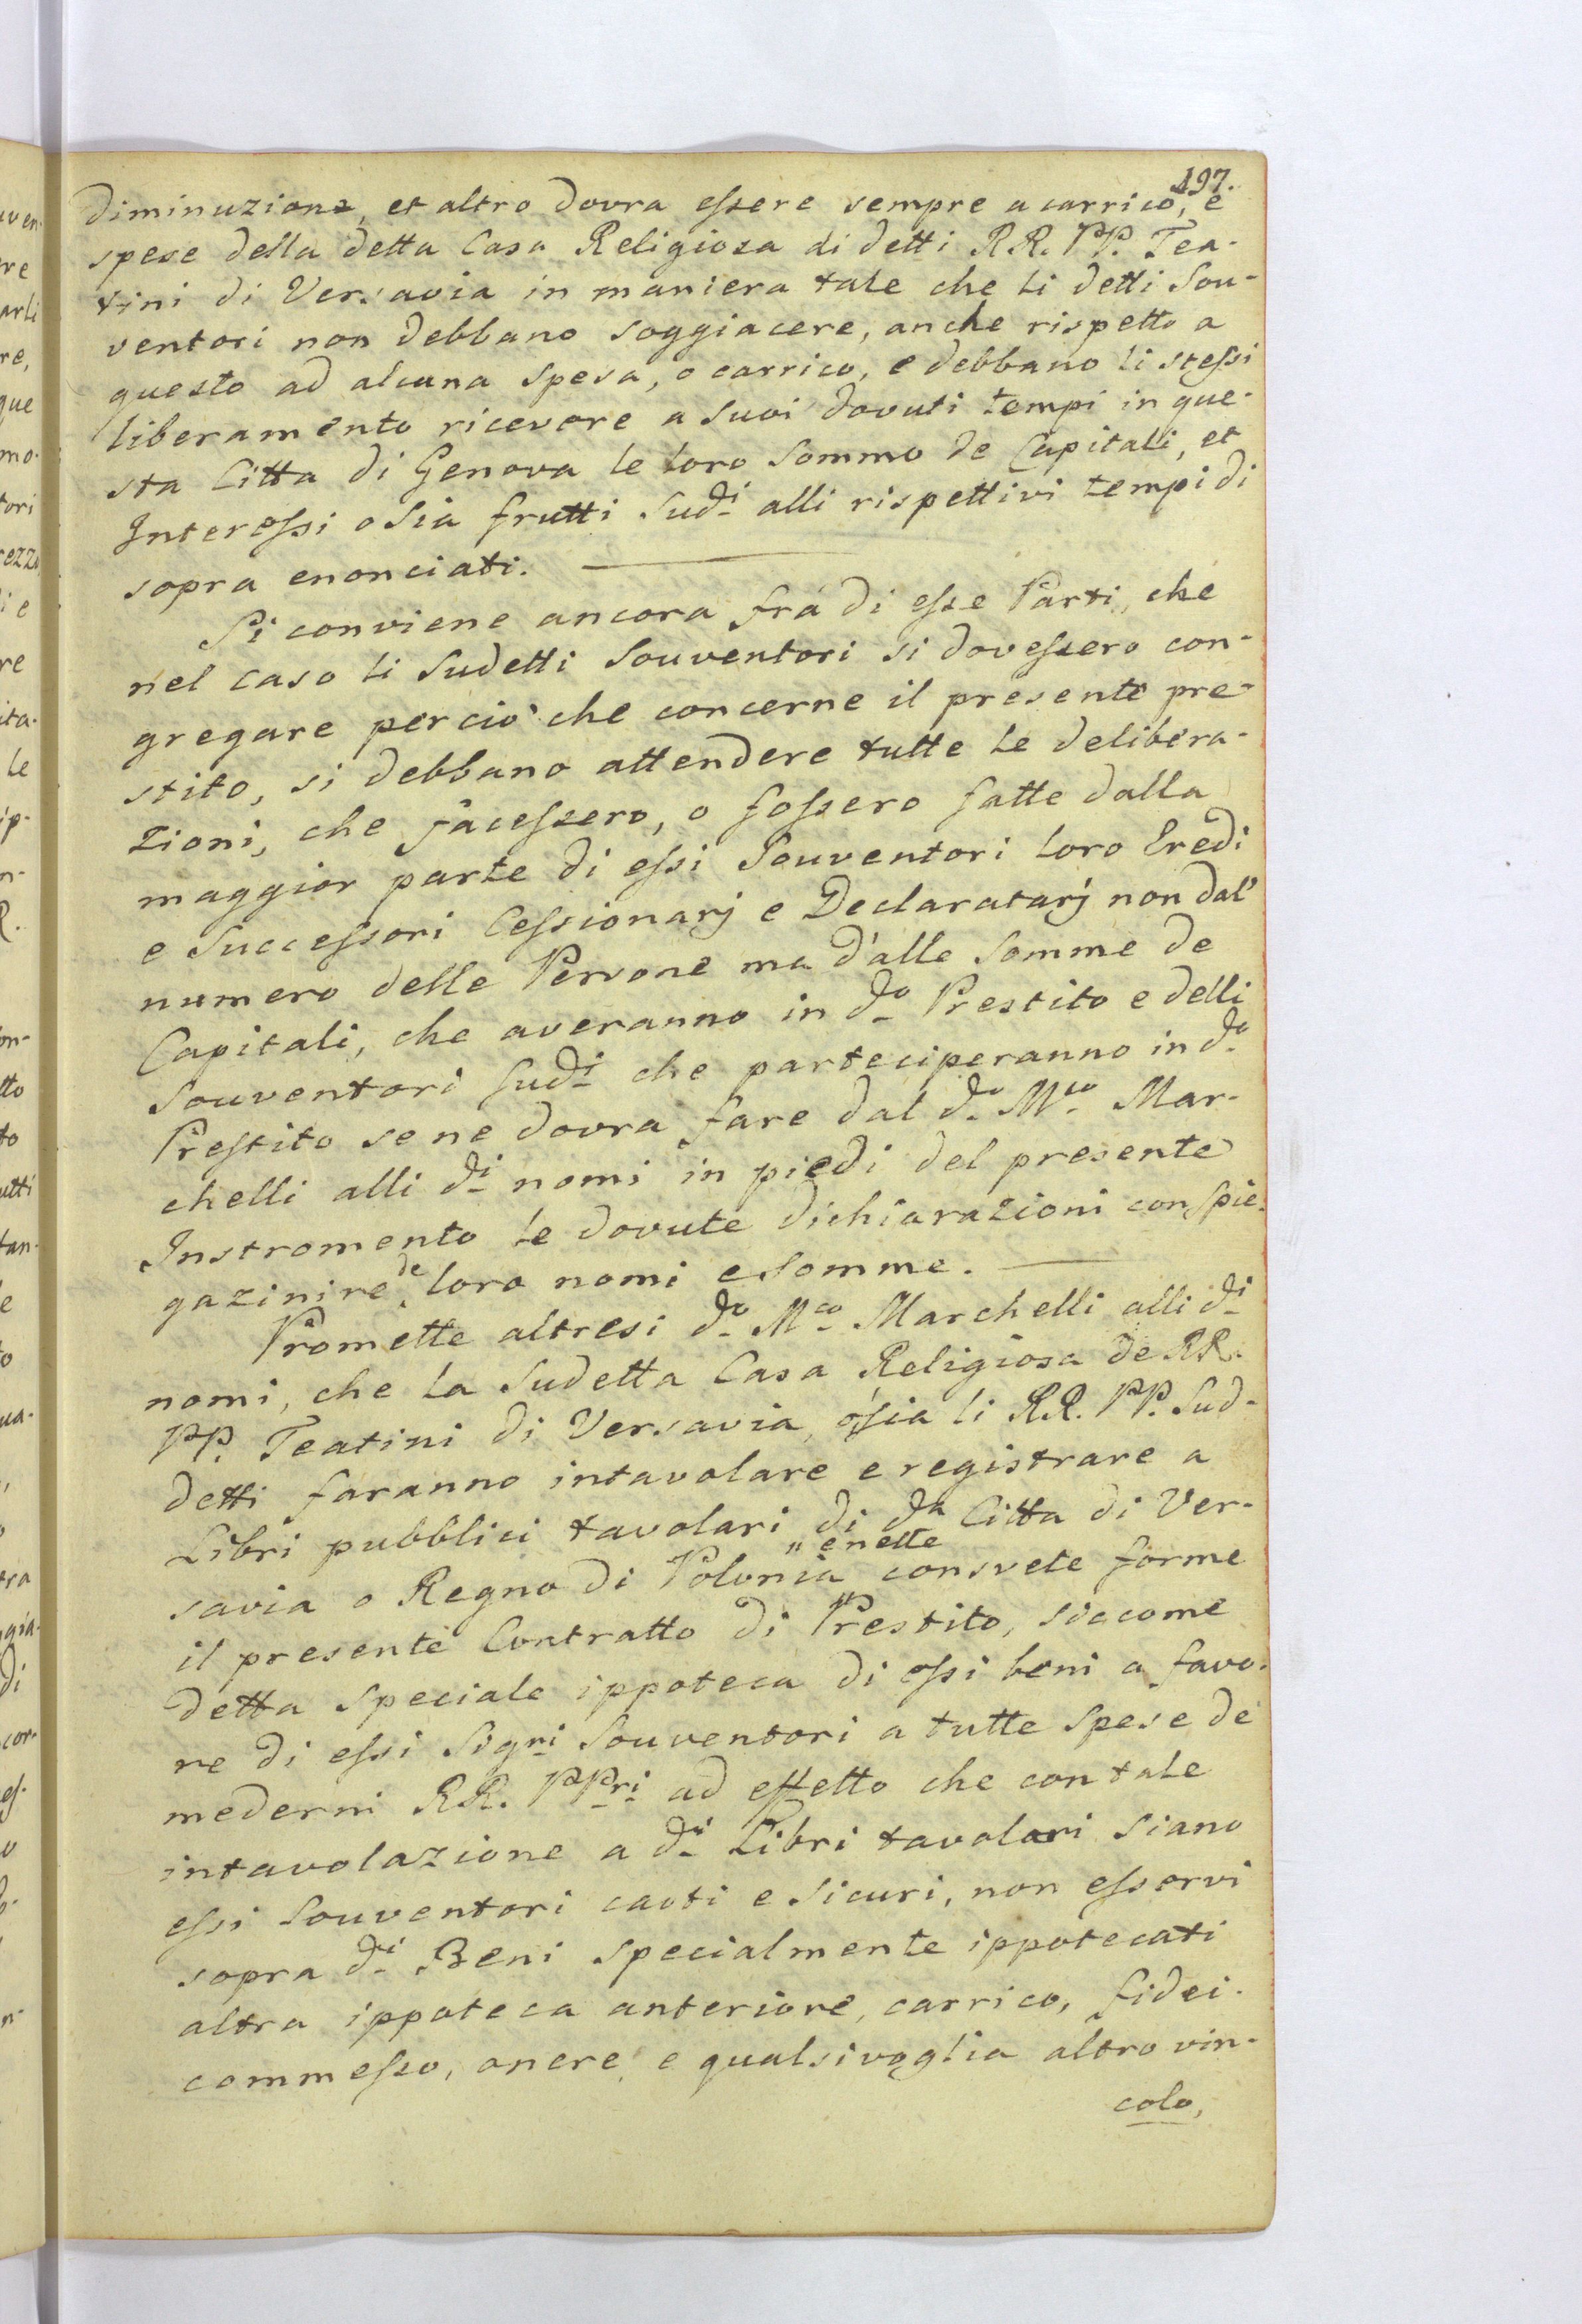 197.
diminuzione, et altro dovra essere sempre a carrico, e
spese della detta Casa Religiosa di detti R.R. PP. Tea-
tini di Versavia in maniera tale che li detti Sou-
ventori non debbano soggiacere, anche rispetto a
questo ad alcuna spesa, o carrico, e debbano li stessi
liberamento ricevere a suoi dovuti tempi in que-
sta Citta di Genova le loro Sommo de Capitali, et
Interessi o sia frutti Sud.i alli rispettivi tempi di
sopra enonciati.
Si conviene ancora frà di esse Parti, che
nel caso li Sudetti Souventori si dovessero con-
gregare perciò che concerne il presente pre-
stito, si debbano attendere tutte le delibera-
zioni, che facessero, o fossero fatte dalla
maggior parte di essi Souventori loro Eredi
e Successori Cessionarj e Declaratarj non dal'
numero delle Persone ma d'alle Somme de
Capitali, che averanno in d.o Prestito e delli
Souventori sud.i che parteciperanno in d.o
Prestito se ne dovra fare dal d.o M.co Mar-
chelli alli d.i nomi in piedi del presente
Instromento le dovute dichiarazioni con spie-
gazinire de loro nomi e somme.
Promette altresi d.o M.co Marchelli alli d.i
nomi, che la Sudetta Casa Religiosa de RR.
PP. Teatini di Versavia, ósia li R.R. PP. Sud-
detti faranno intavolare e registrare a
Libri pubblici tavolari di d.a Citta di Ver-
savia o Regno di Polonia " e nelle consvete forme
il presente Contratto di Prestito, siccome
detta speciale ippoteca di essi beni a favo-
re di essi Sig.ri Souventori a tutte spese de
mederni R.R. PP.ri ad effetto che con tale
intavolazione a d.i Libri tavolari siano
essi Souventori cauti e sicuri, non esservi
sopra d.i Beni specialmente ippotecati
altra ippoteca anteriore, carrico, fidei-
commesso, onere, e qualsivoglia altro vin-
colo,